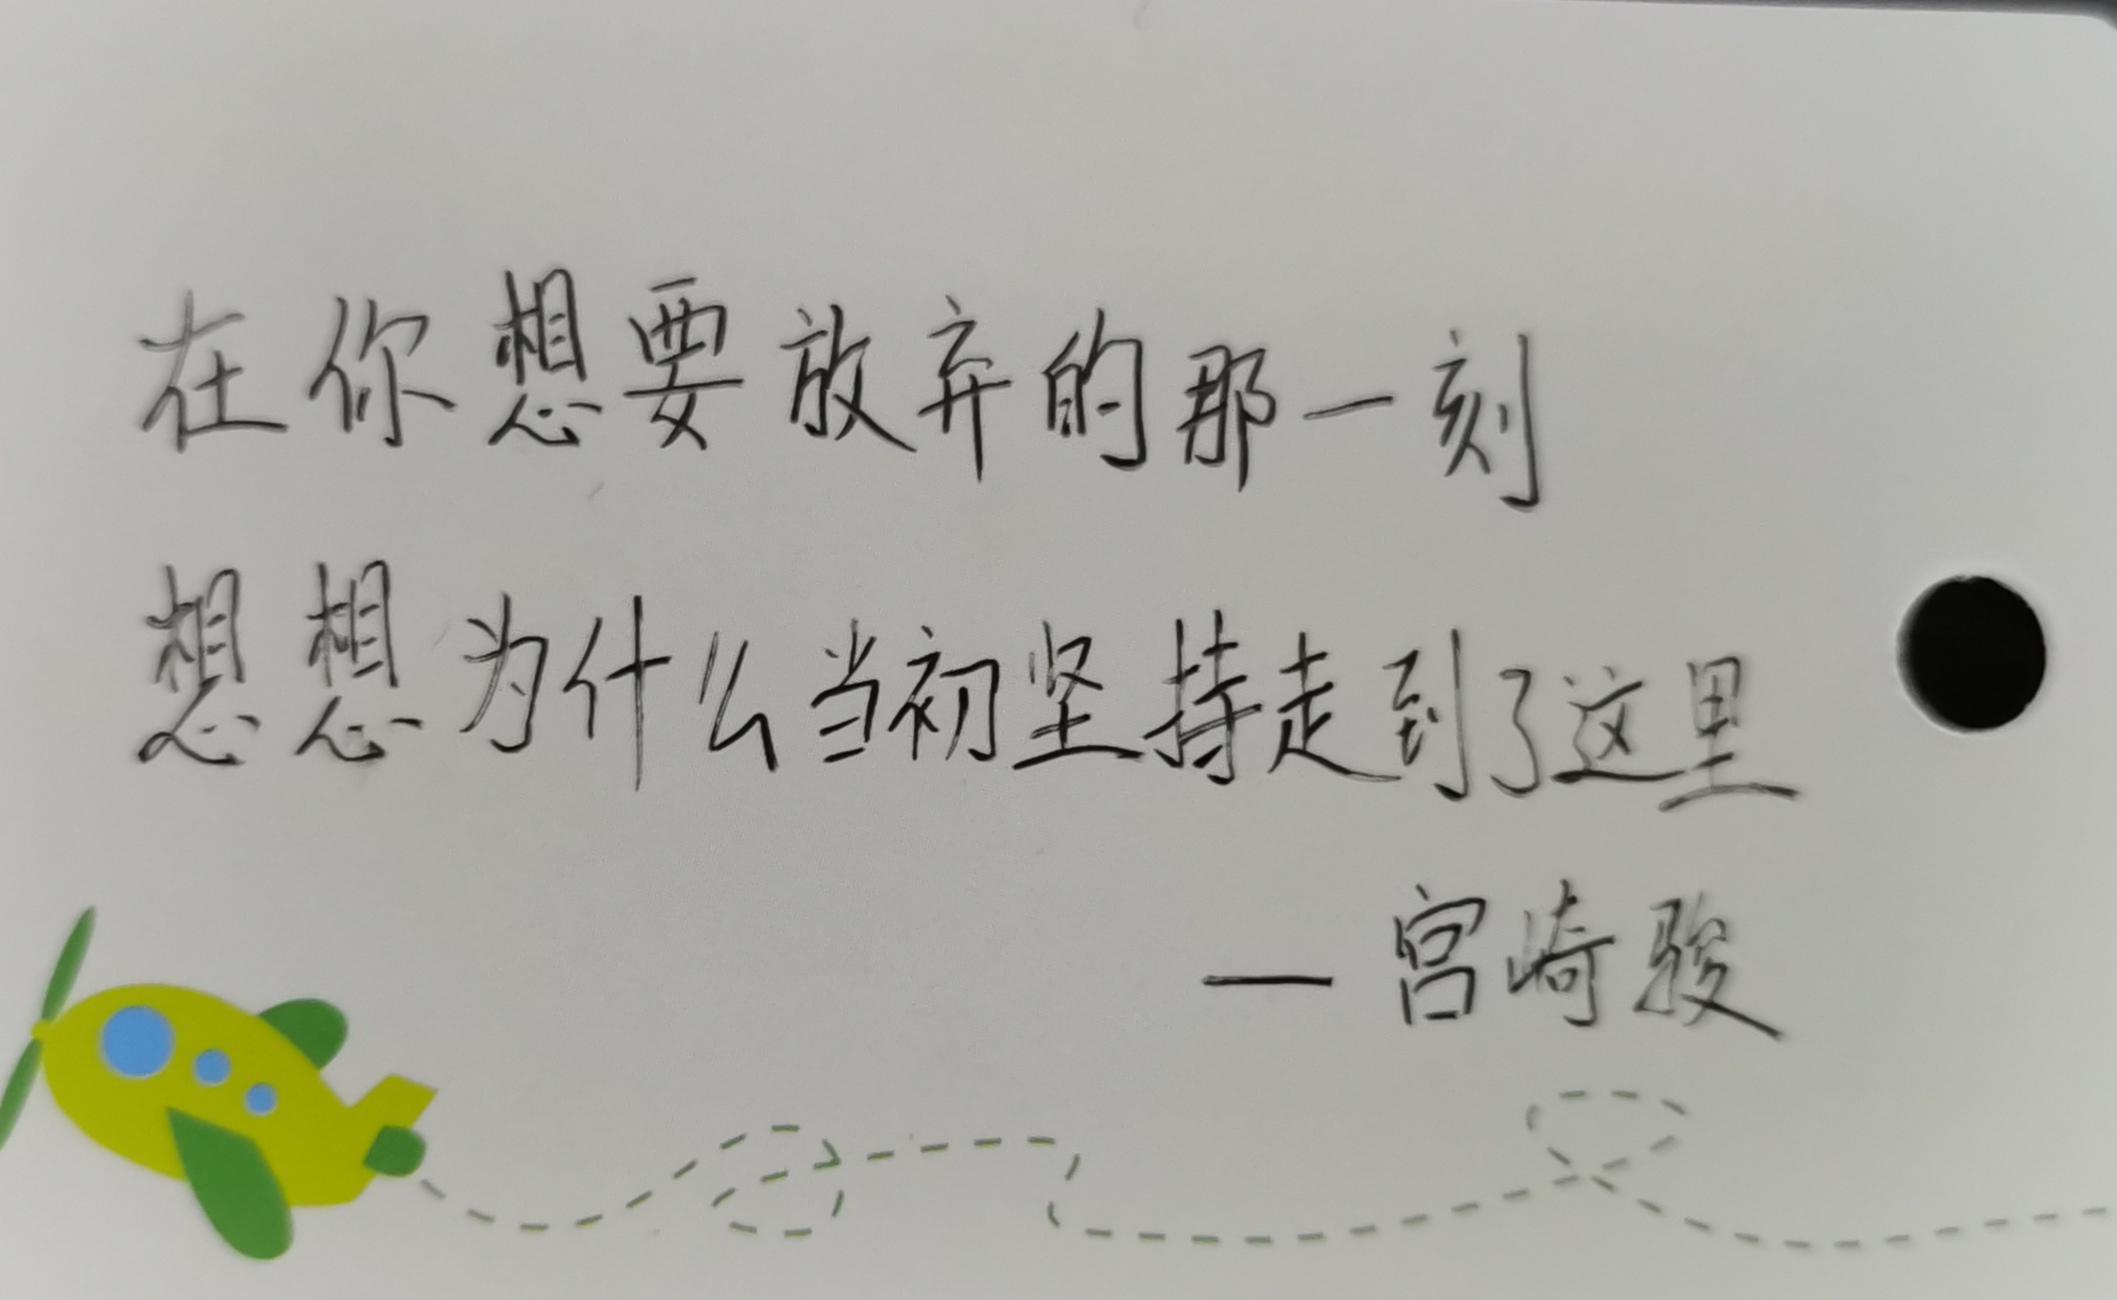 在你想要放弃的那一刻
想想为什么当初坚持走到了这里
—宫崎骏